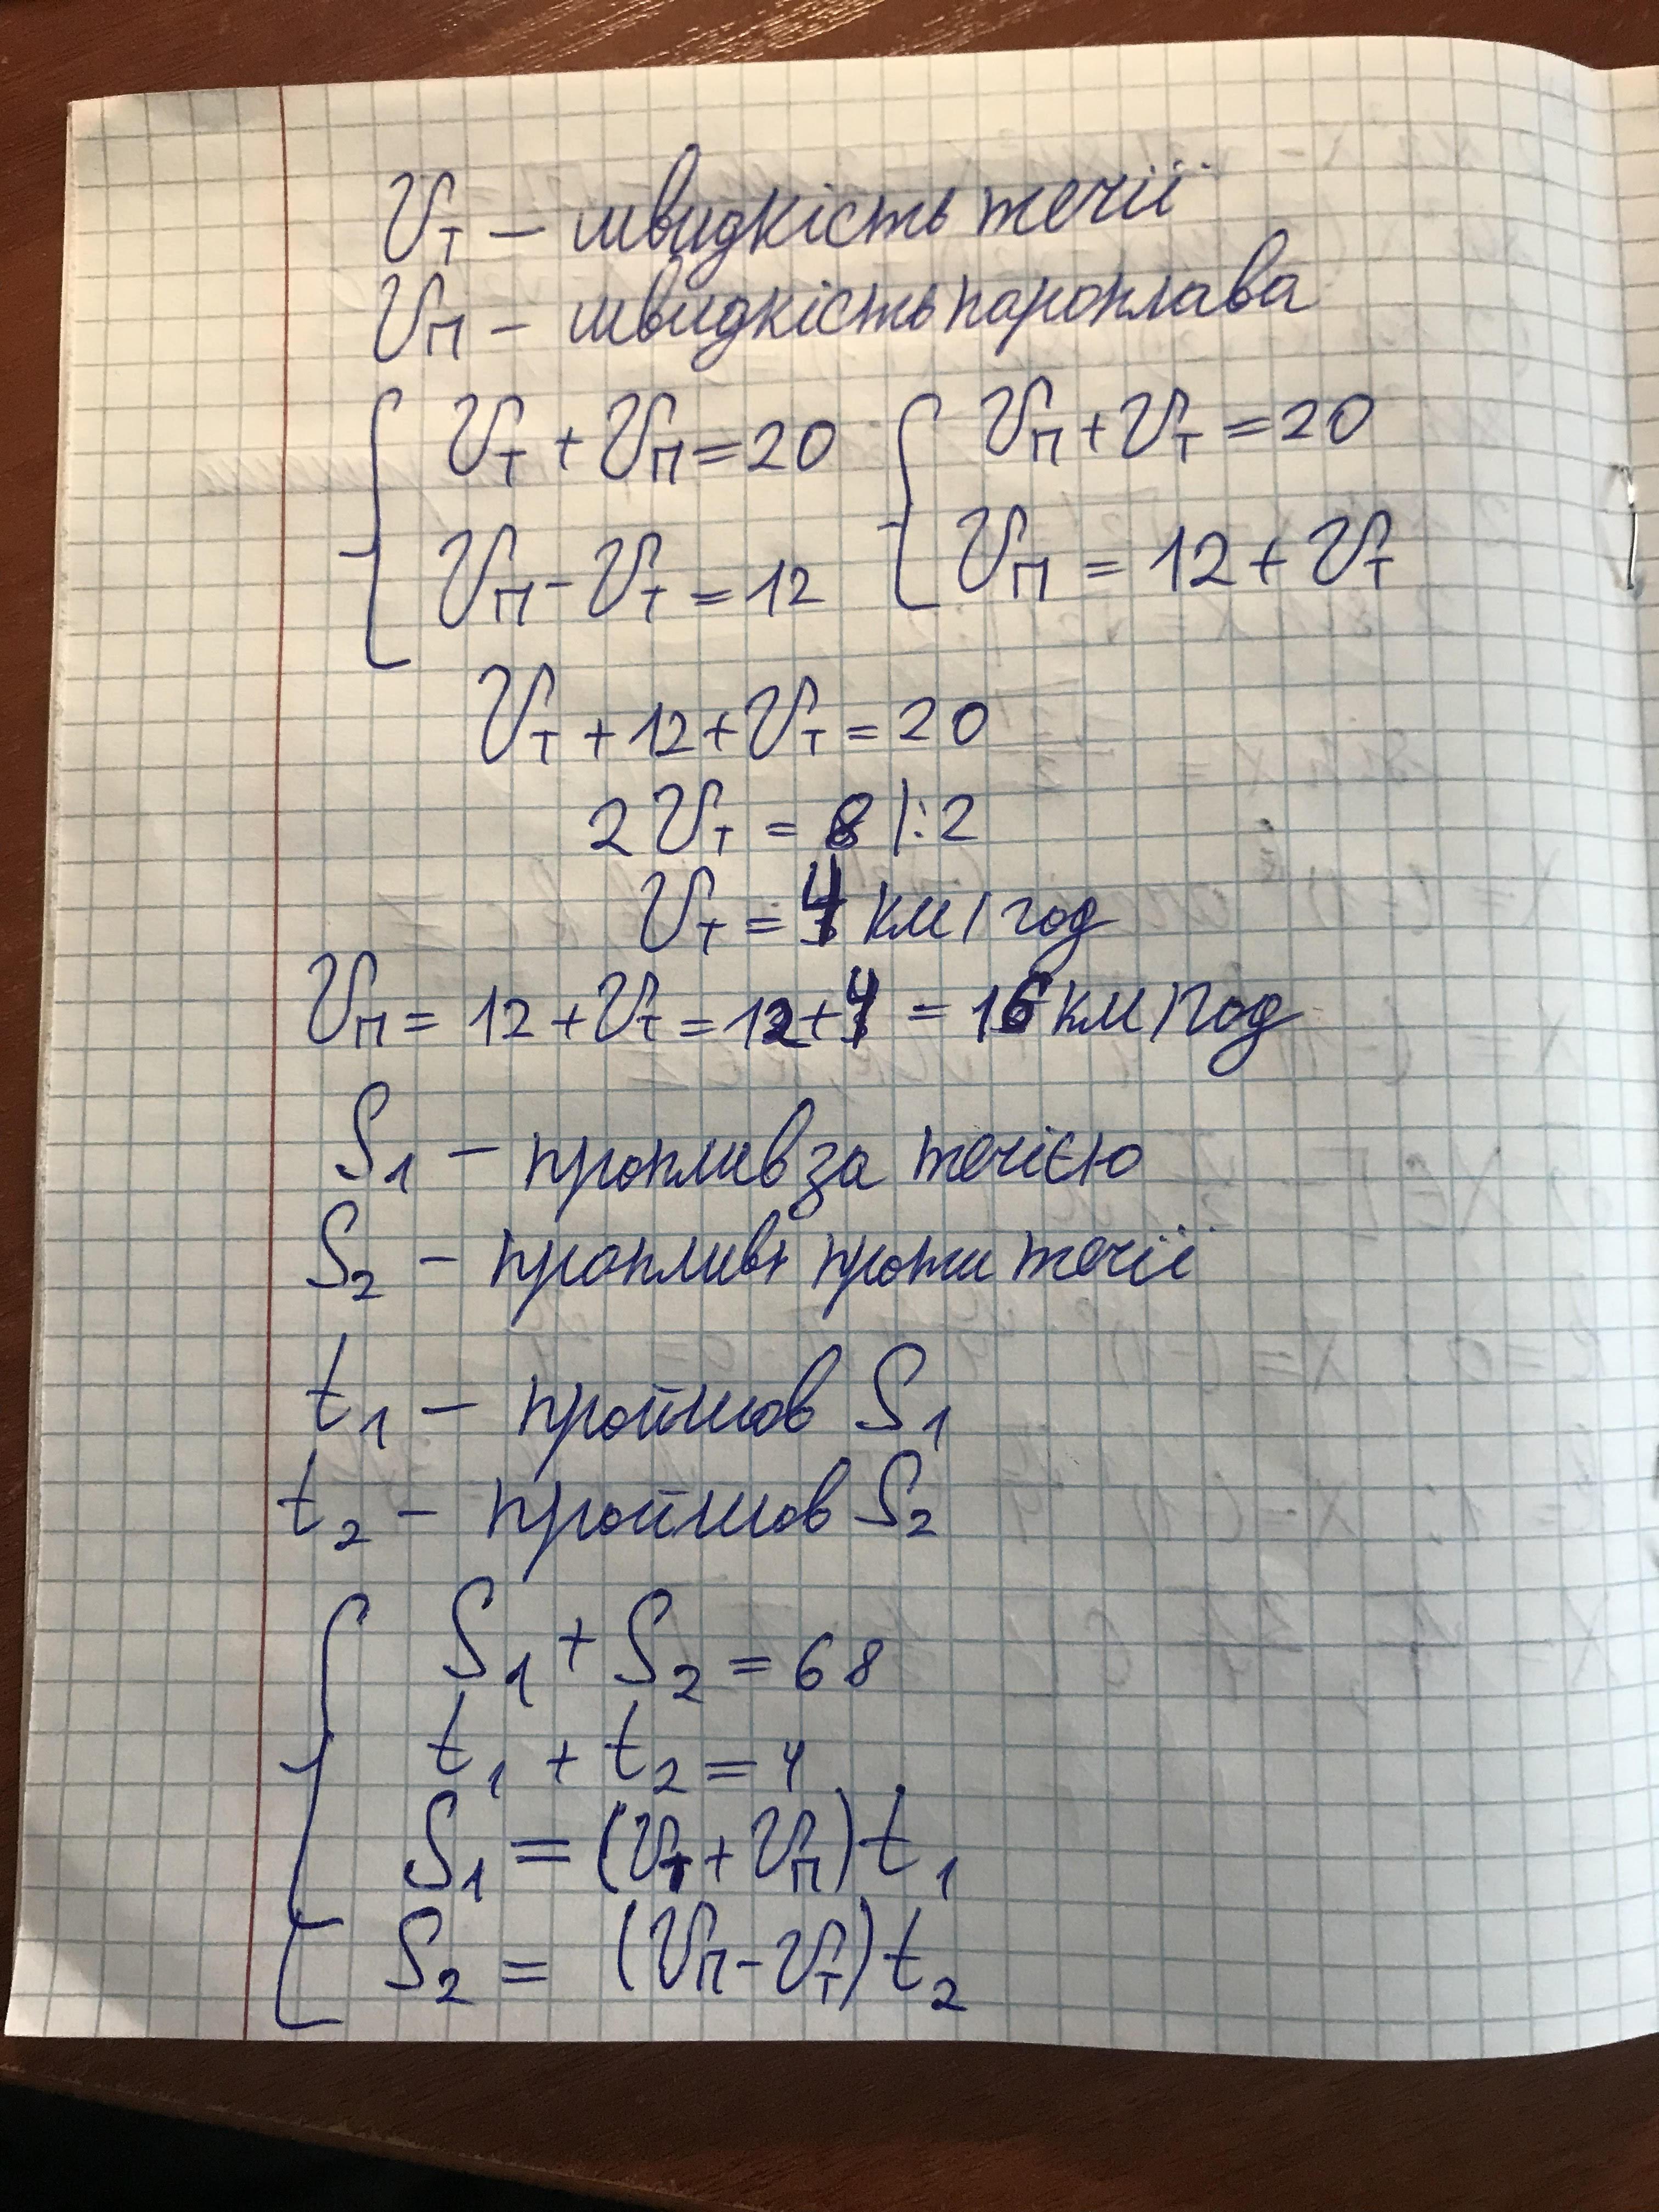 Vт – швидкість течії
Vп – швидкість пароплава
Vт + Vп = 20
Vп – Vт = 12
Vп + Vт = 20
Vп = 12 + Vт
Vт + 12 + Vт = 20
2Vт = 8 |:2
Vт = 4 км/год
Vп = 12 + Vт = 12 + 4 = 16 км/год
S1 – проплив за течією
S2 – проплив проти течії
t1 – пройшов S1
t2 – пройшов S2
S1 + S2 = 68
t1 + t2 = 4
S1 = (Vт + Vп)t1
S2 = (Vп – Vт)t2